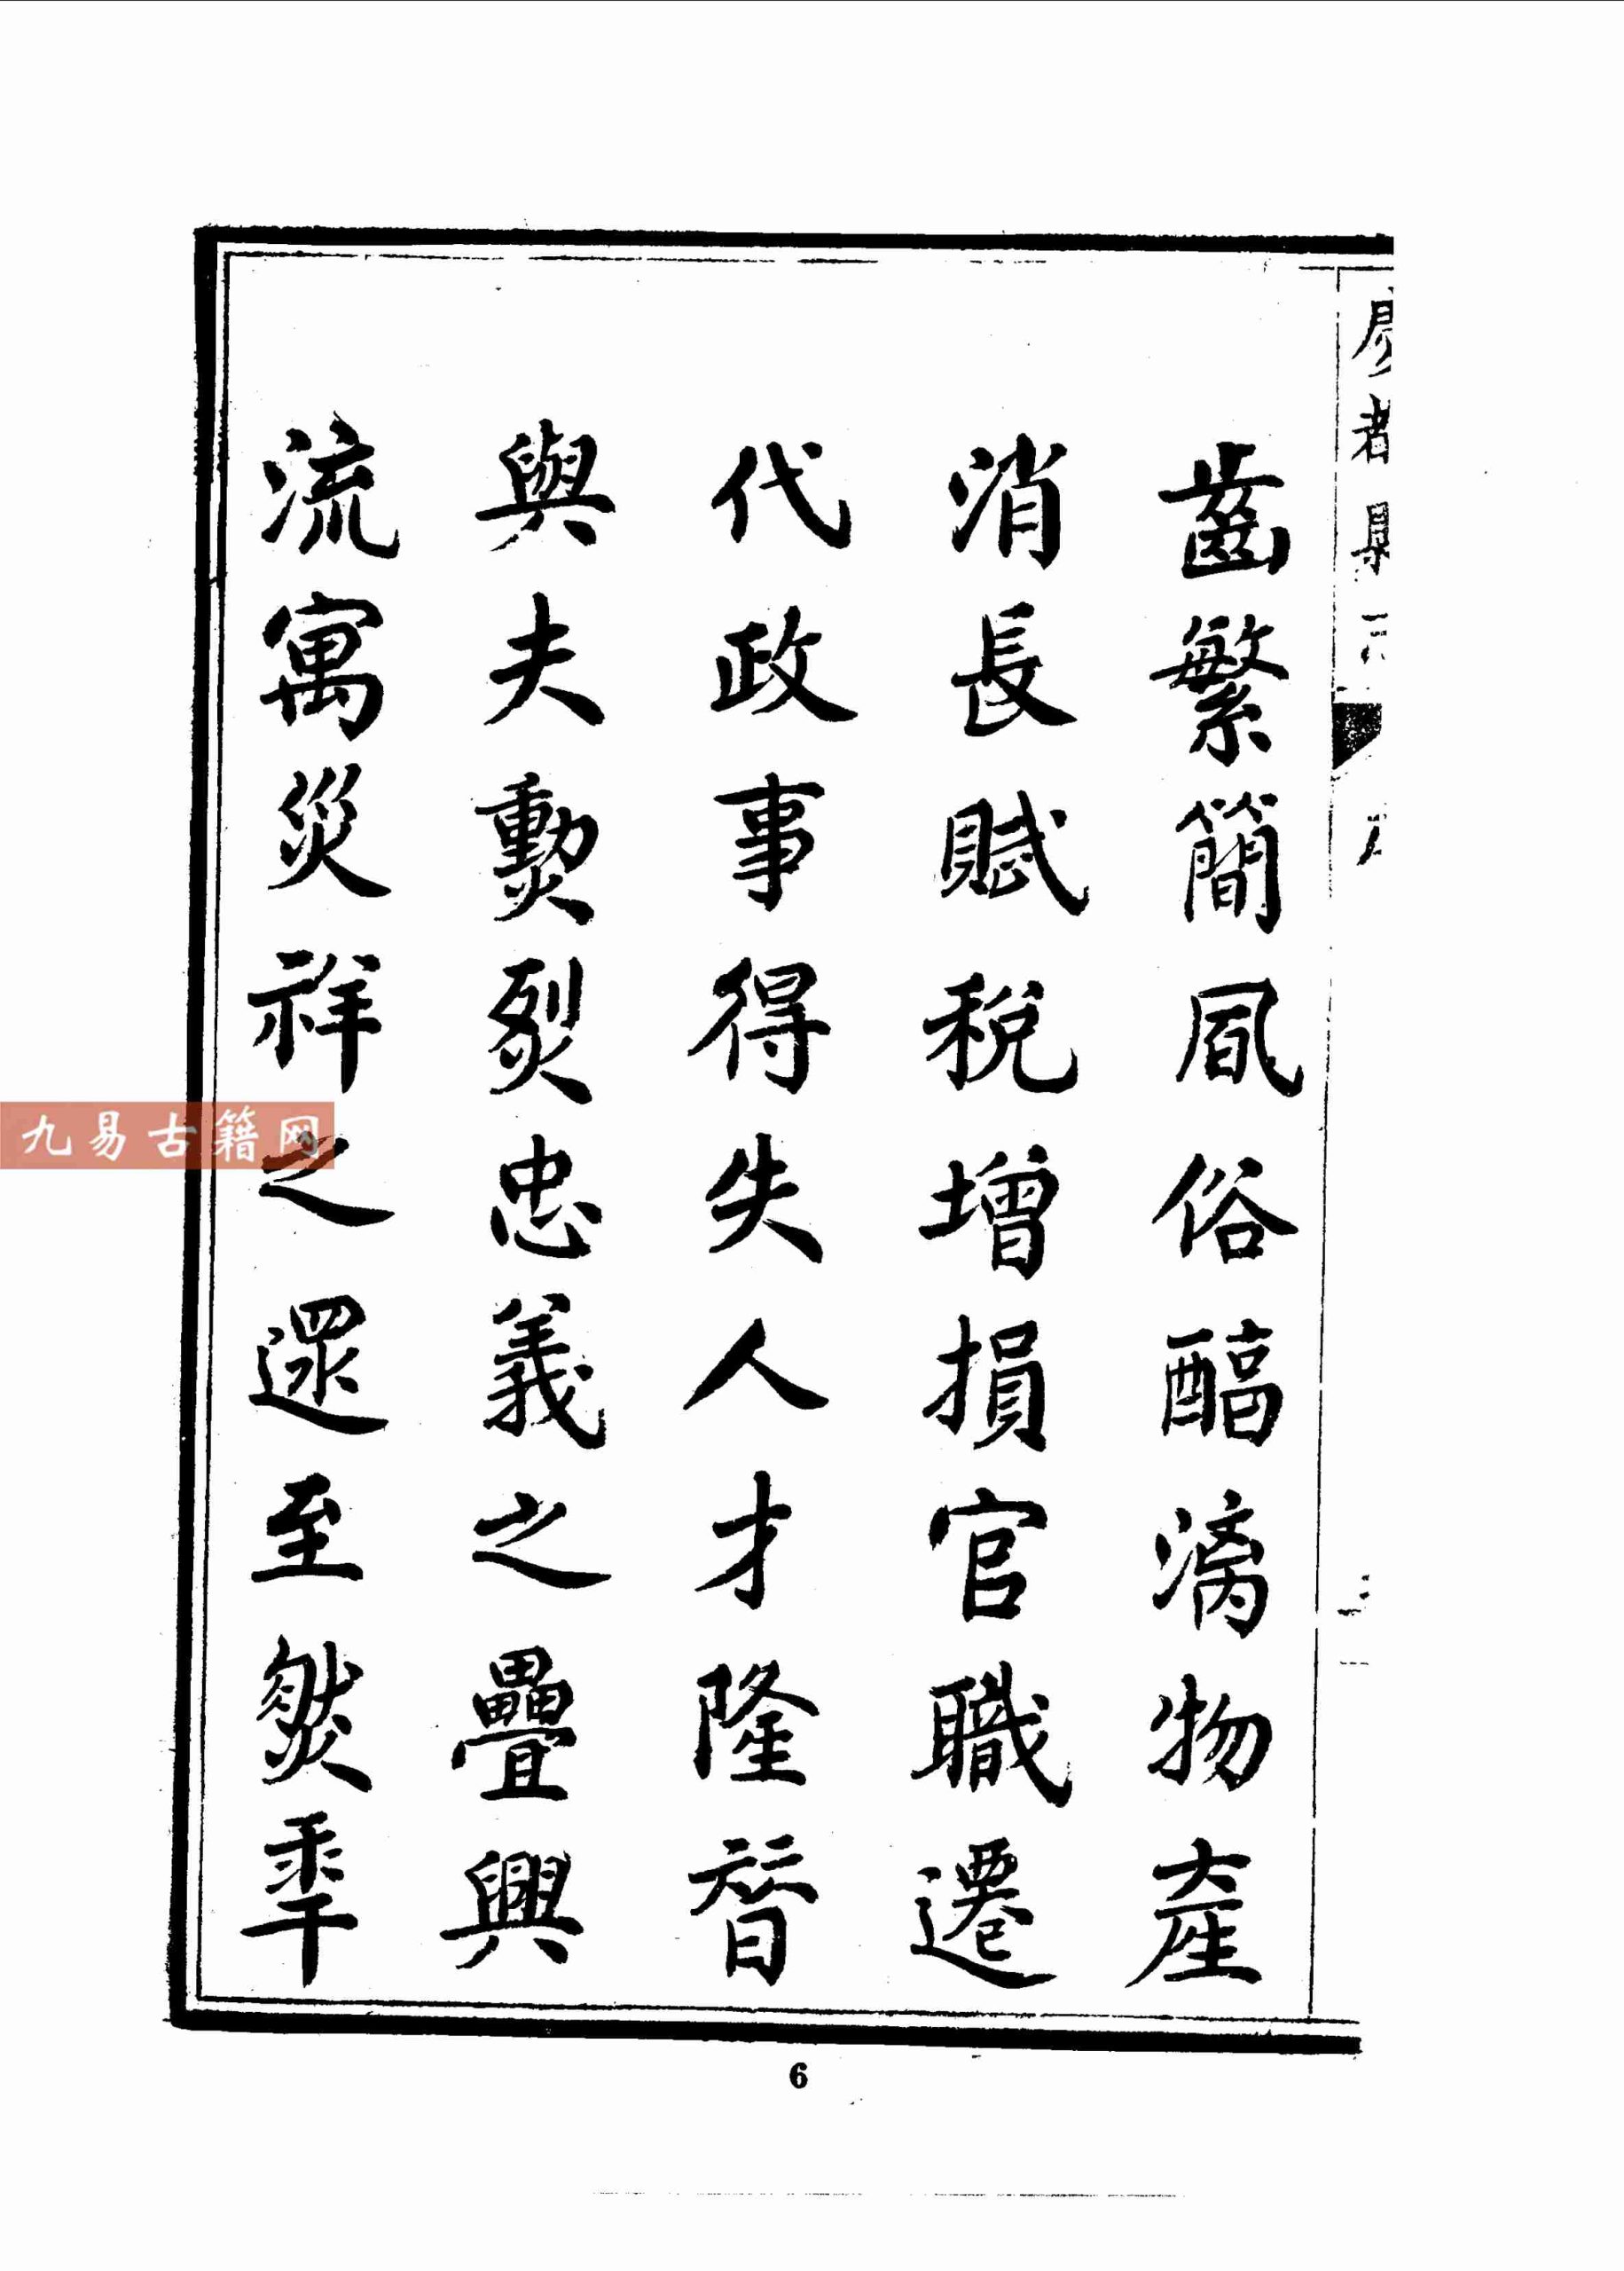 齒繁簡風俗醇漓物產
消長賦稅增損官職遷
代政事得失人才隆替
與夫勲烈忠義之疊興
流寓災祥之遝至燃犀
者縣
九易古籍网
6